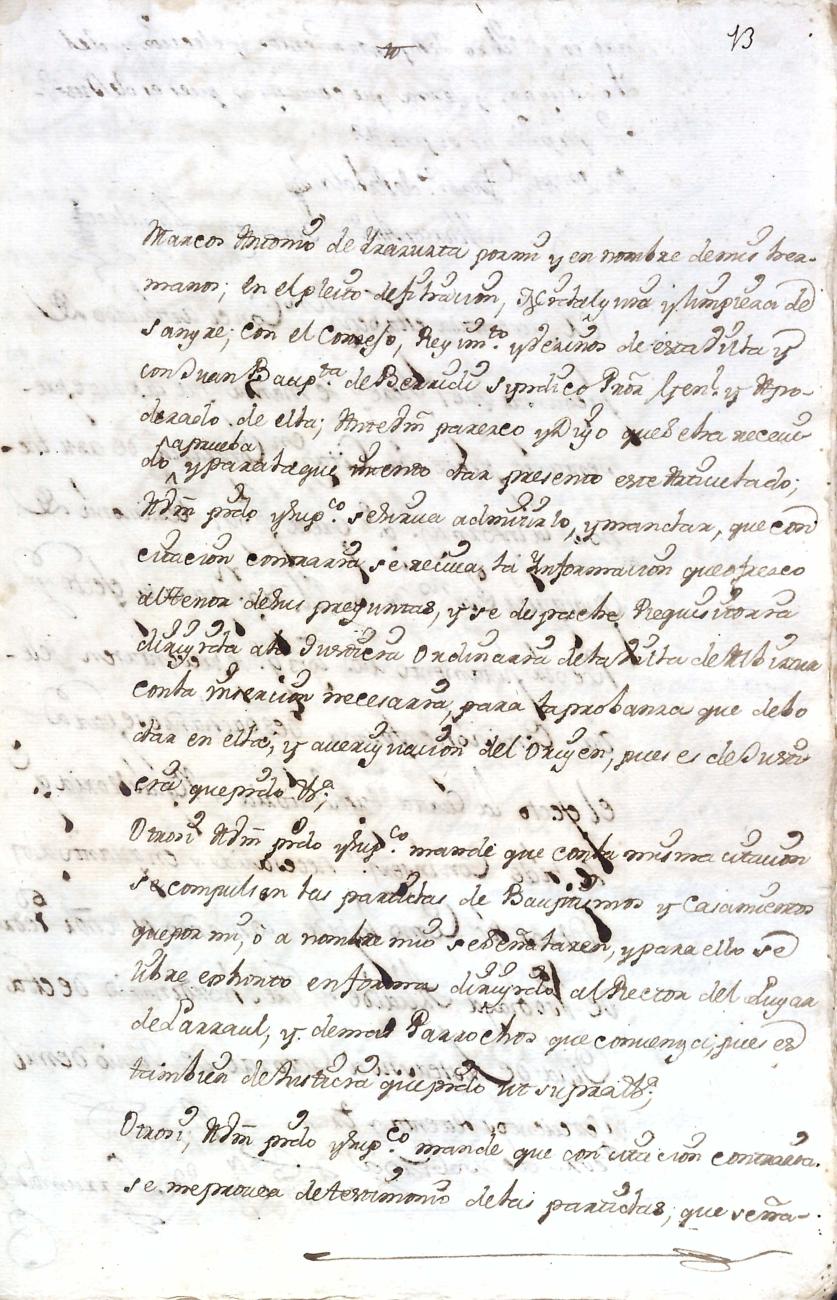 13
Marcos Antonio de Yrazusta por mi y en nombre de mis her-
manos; en el pleito de filiacion, Hidalguia y limpieza de
sangre; con el Consejo, Regim.to y vecinos de esta Villa y
con Juan Baup.ta de Berridi sindico Pror Genl. y Apo-
derado de ella; Ante Vm parezco y Digo que se ha receui
do a prueba y para la que intento dar presento este Articulado;
A Vm pido y sup.co se sirua admitirlo, y mandar, que con
citacion contraria se reciua la Informacion que ofrezco
al tenor de sus preguntas, y se despache Requisitoria
dirigida a la Justicia Ordinaria de la Villa de Albiztur
con la insercion necesaria, para la probanza que debo
dar en ella; y aueriguacion del Origen; pues es de Justi
cia que pido &.a;
Otrosi A Vm pido y sup.co mande que con la misma citacion
se compulsen las partidas de Bauptismos y Casamientos
que por mi, ò a nombre mio se señalaren, y para ello se
libre exhorto en forma dirigido al Rector del Lugar
de Larraul, y demas Parrochos que conuenga; pues es
tambien de Justicia que pido ut supra &.a;
Otrosi; A Vm pido y sup.co mande que con citacion contraria
se me prouea de testimonio de las partidas, que seña-